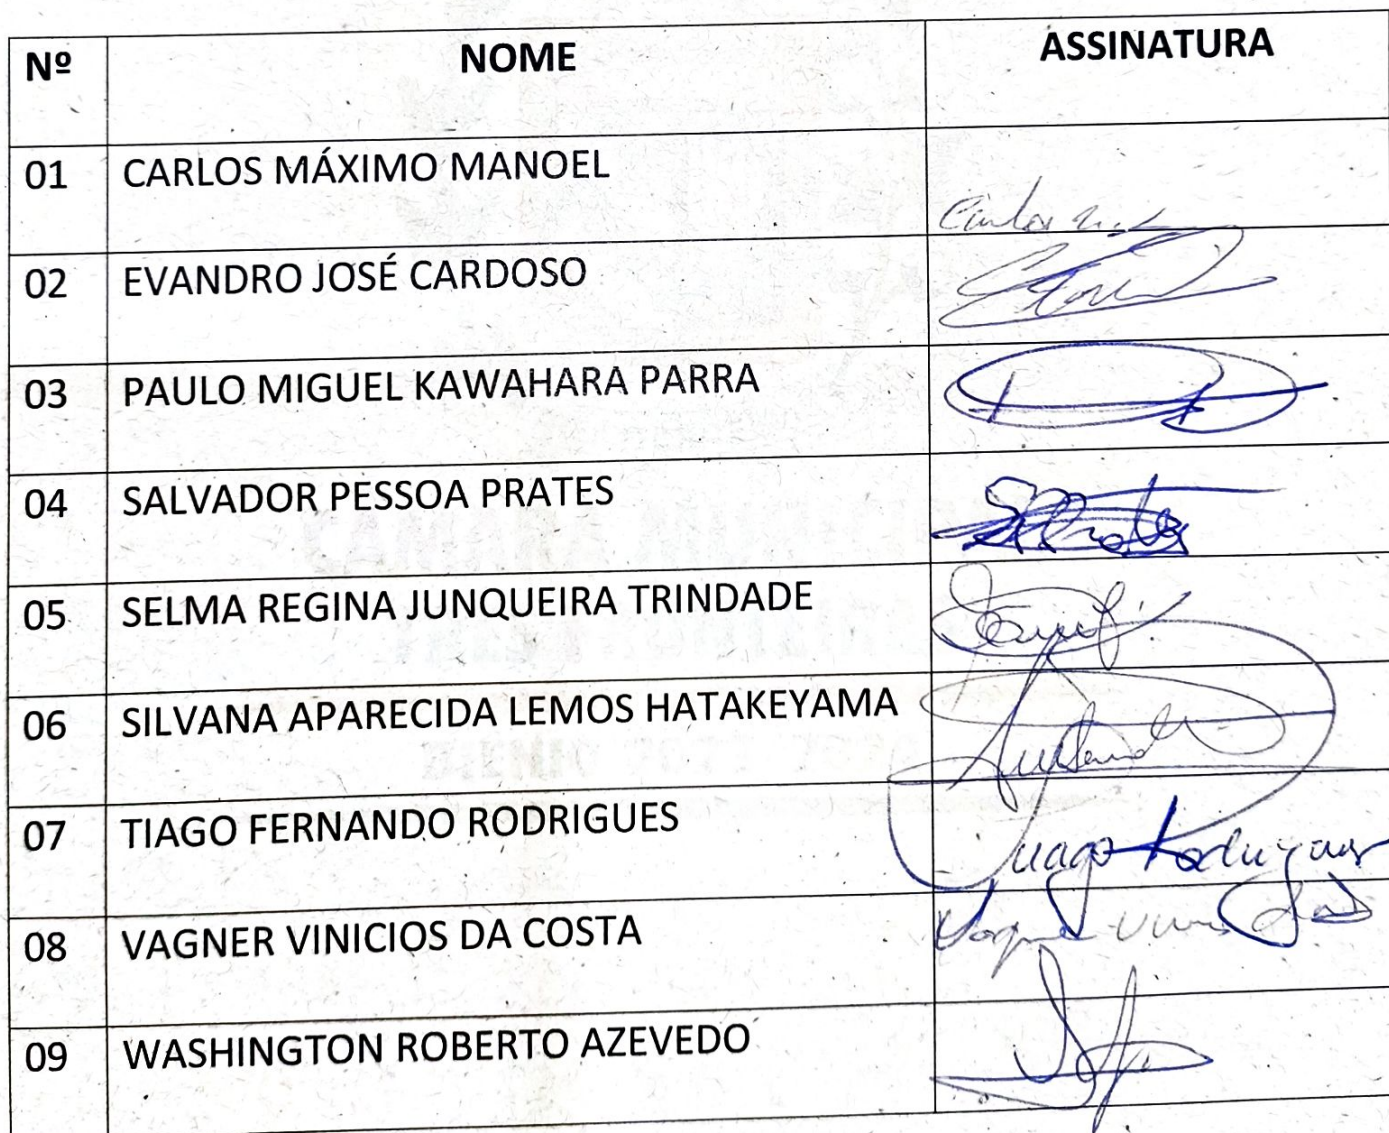 Nº NOME ASSINATURA
01 CARLOS MÁXIMO MANOEL
Carlos
02 EVANDRO JOSÉ CARDOSO
03 PAULO MIGUEL KAWAHARA PARRA
04 SALVADOR PESSOA PRATES
SPrates
05 SELMA REGINA JUNQUEIRA TRINDADE
06 SILVANA APARECIDA LEMOS HATAKEYAMA
07 TIAGO FERNANDO RODRIGUES
Tiago Rodrigues
08 VAGNER VINICIOS DA COSTA
Vagner
09 WASHINGTON ROBERTO AZEVEDO